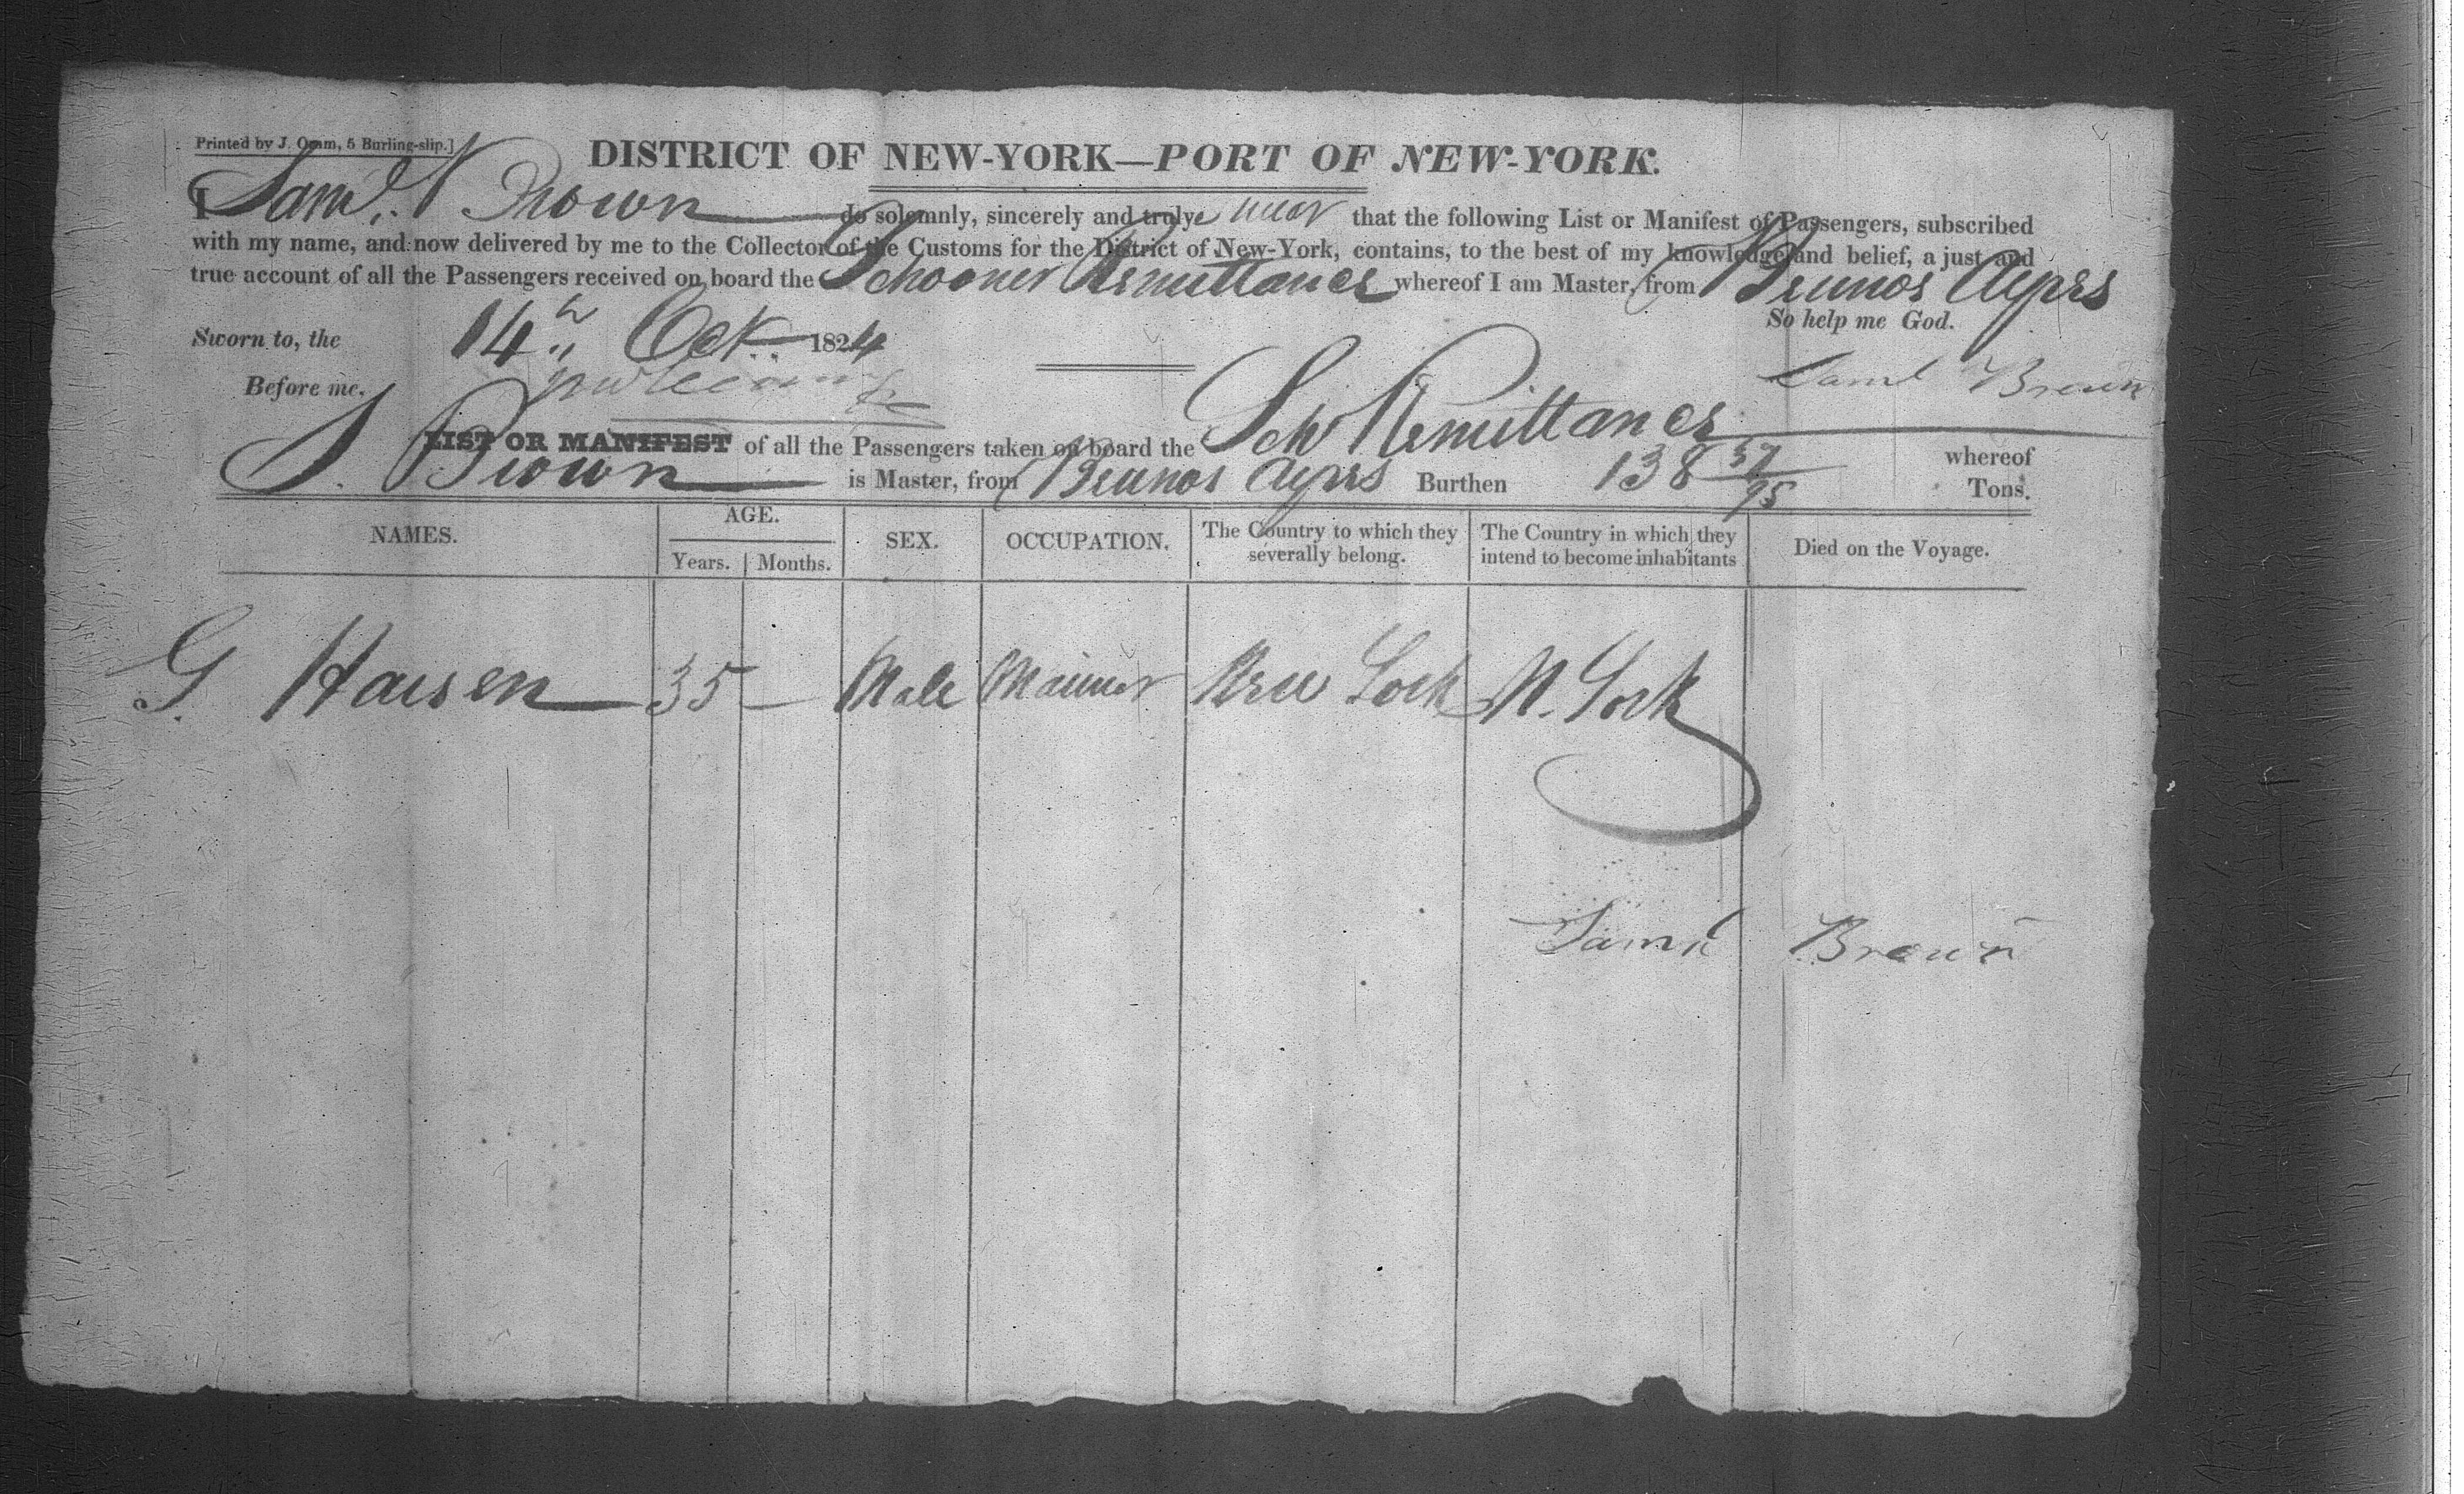 Printed by J. Oram, 5 Burling-slip.]
DISTRICT OF NEW-YORK—PORT OF NEW-YORK.
I Saml. Brown do solemnly, sincerely and truly swear that the following List or Manifest of Passengers, subscribed
with my name, and now delivered by me to the Collector of the Customs for the District of New-York, contains, to the best of my knowledge and belief, a just and
true account of all the Passengers received on board the Schooner Remittance whereof I am Master, from Buenos Ayres
So help me God.
Sworn to, the 14th Oct. 1824
Saml Brown
Before me,
LIST OR MANIFEST of all the Passengers taken on board the Schr Remittance whereof
S. Brown is Master, from Buenos Ayres Burthen 138 37/95 Tons.
NAMES. AGE. SEX. OCCUPATION. The Country to which they severally belong. The Country in which they intend to become inhabitants Died on the Voyage.
Years. Months.
G. Hansen 35 — Male Mariner New York N. York
Saml Brown